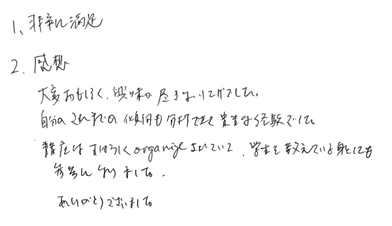 1、非常に満足
2. 感想
大変おもしろく、興味の尽きないリサーチでした。
自分のこれまでの 分析でき 貴重な経験でした
はすばらしくorganizeされていて、学生を教えている身としても
参考になりました。
ありがとうございました